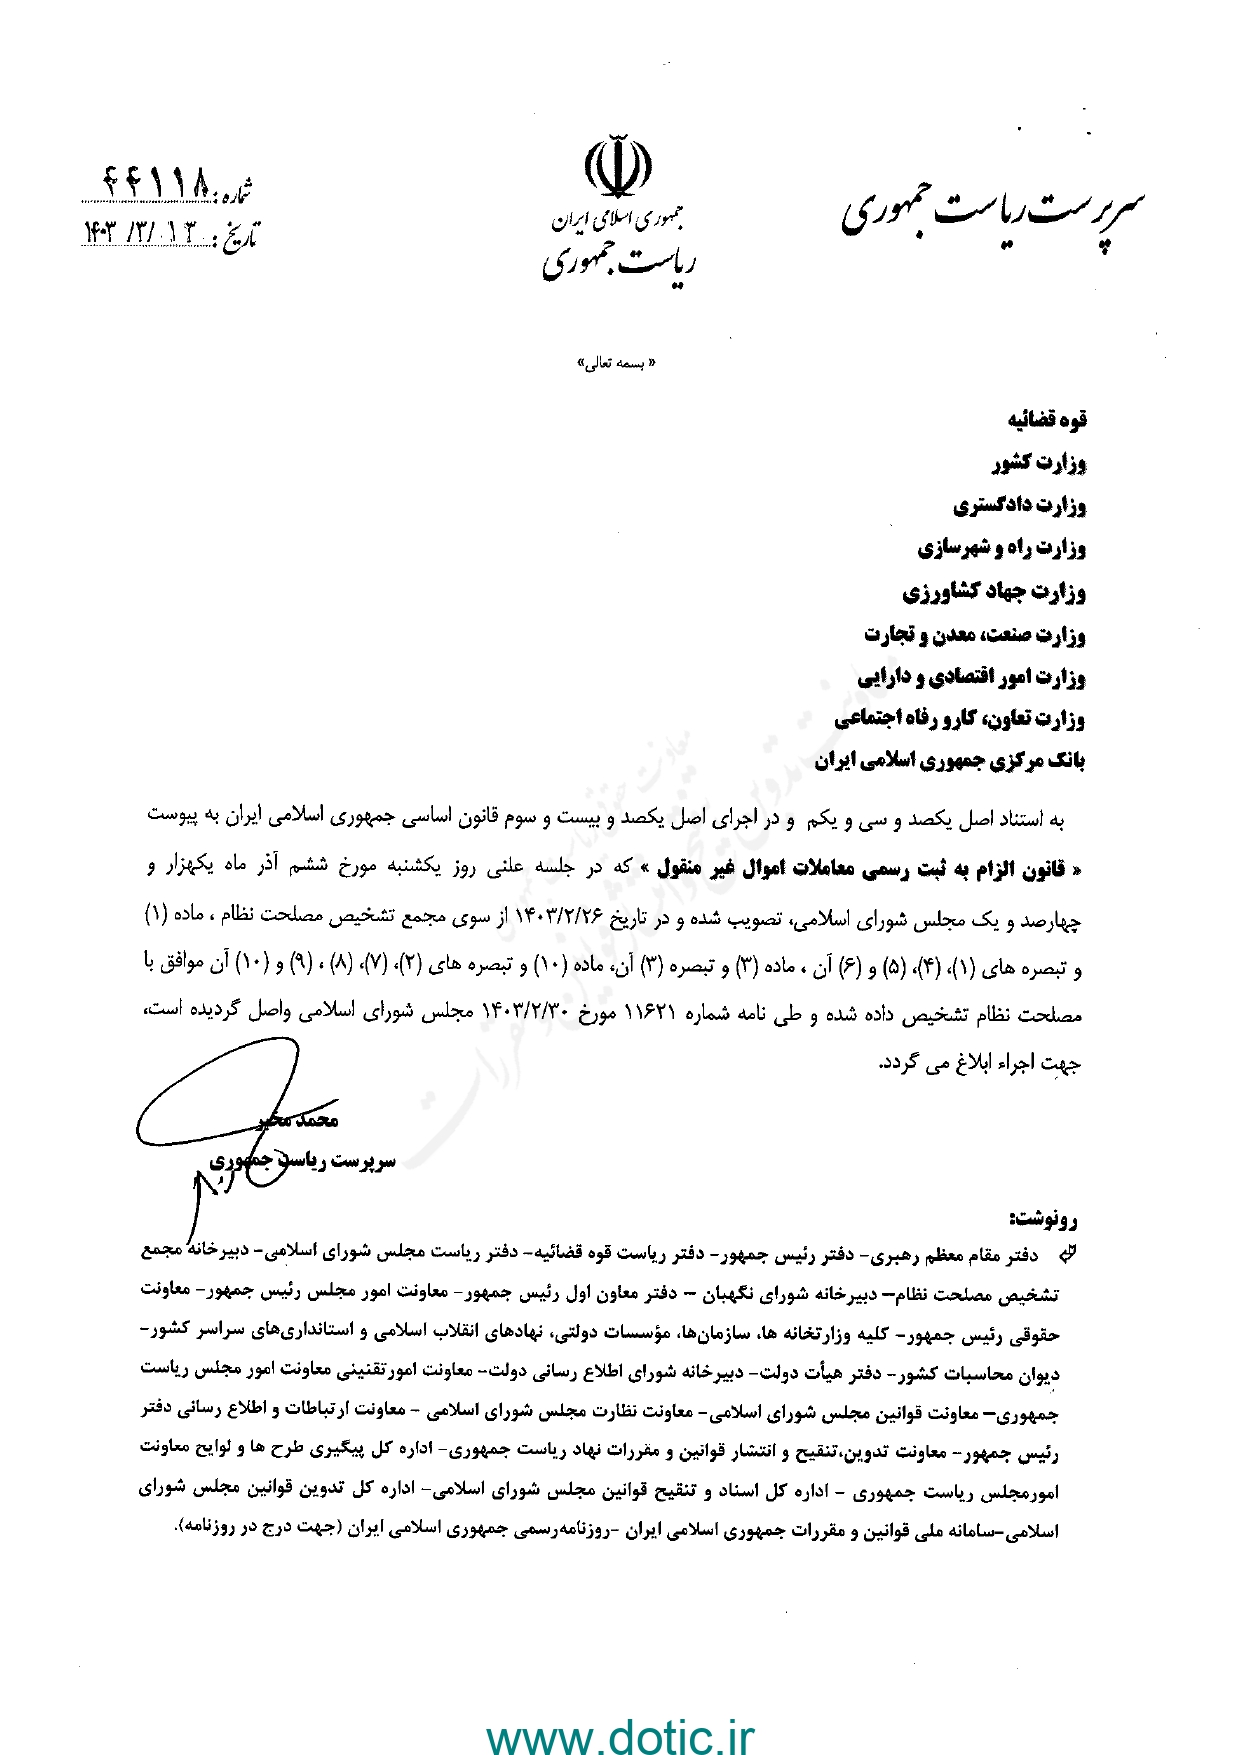 سرپرست ریاست جمهوری
جمهوری اسلامی ایران
ریاست جمهوری
شماره: ۴۴۱۱۸
تاریخ: ۱۴۰۳/۳/۱۳
« بسمه تعالی»
قوه قضائیه
وزارت کشور
وزارت دادگستری
وزارت راه و شهرسازی
وزارت جهاد کشاورزی
وزارت صنعت، معدن و تجارت
وزارت امور اقتصادی و دارایی
وزارت تعاون، کار و رفاه اجتماعی
بانک مرکزی جمهوری اسلامی ایران
به استناد اصل یکصد و سی و یکم و در اجرای اصل یکصد و بیست و سوم قانون اساسی جمهوری اسلامی ایران به پیوست
« قانون الزام به ثبت رسمی معاملات اموال غیر منقول » که در جلسه علنی روز یکشنبه مورخ ششم آذر ماه یکهزار و
چهارصد و یک مجلس شورای اسلامی، تصویب شده و در تاریخ ۱۴۰۳/۲/۲۶ از سوی مجمع تشخیص مصلحت نظام ، ماده (۱)
و تبصره های (۱)، (۴)، (۵) و (۶) آن ، ماده (۳) و تبصره (۳) آن، ماده (۱۰) و تبصره های (۲)، (۷)، (۸) ، (۹) و (۱۰) آن موافق با
مصلحت نظام تشخیص داده شده و طی نامه شماره ۱۱۶۲۱ مورخ ۱۴۰۳/۲/۳۰ مجلس شورای اسلامی واصل گردیده است،
جهت اجراء ابلاغ می گردد.
محمد مخبر
سرپرست ریاست جمهوری
رونوشت:
دفتر مقام معظم رهبری- دفتر رئیس جمهور- دفتر ریاست قوه قضائیه- دفتر ریاست مجلس شورای اسلامی- دبیرخانه مجمع
تشخیص مصلحت نظام– دبیرخانه شورای نگهبان – دفتر معاون اول رئیس جمهور- معاونت امور مجلس رئیس جمهور- معاونت
حقوقی رئیس جمهور- کلیه وزارتخانه ها، سازمان‌ها، مؤسسات دولتی، نهادهای انقلاب اسلامی و استانداری‌های سراسر کشور-
دیوان محاسبات کشور- دفتر هیأت دولت- دبیرخانه شورای اطلاع رسانی دولت- معاونت امورتقنینی معاونت امور مجلس ریاست
جمهوری– معاونت قوانین مجلس شورای اسلامی- معاونت نظارت مجلس شورای اسلامی - معاونت ارتباطات و اطلاع رسانی دفتر
رئیس جمهور- معاونت تدوین،تنقیح و انتشار قوانین و مقررات نهاد ریاست جمهوری- اداره کل پیگیری طرح ها و لوایح معاونت
امورمجلس ریاست جمهوری - اداره کل اسناد و تنقیح قوانین مجلس شورای اسلامی- اداره کل تدوین قوانین مجلس شورای
اسلامی-سامانه ملی قوانین و مقررات جمهوری اسلامی ایران -روزنامه‌رسمی جمهوری اسلامی ایران (جهت درج در روزنامه).
www.dotic.ir